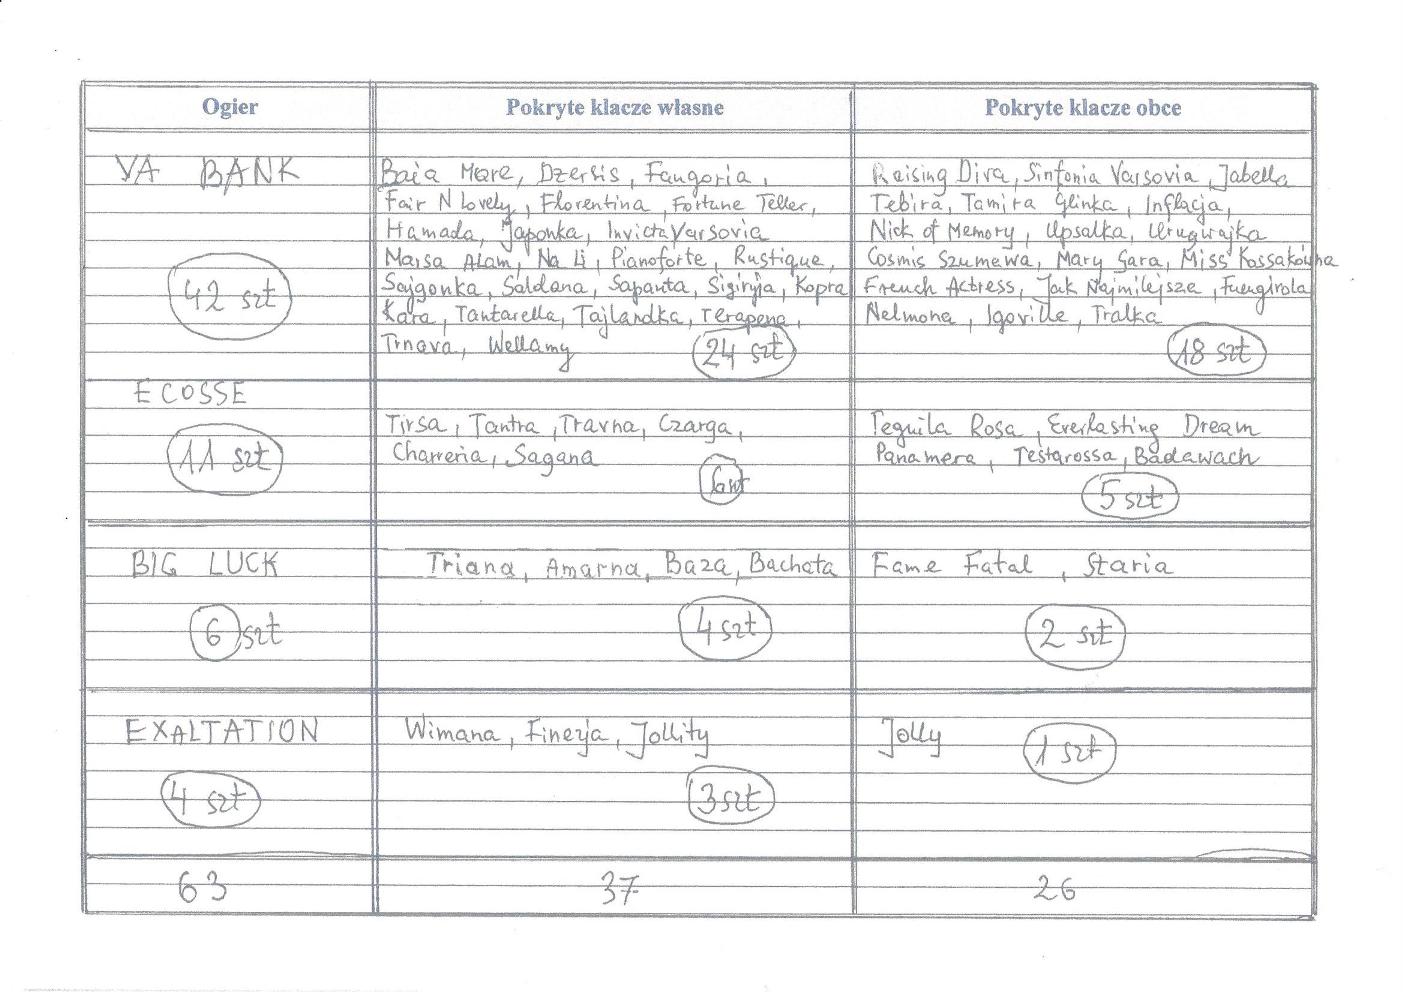 Ogier
Pokryte klacze własne
Pokryte klacze obce
VA BANK
42 szt
Baia Mare, Dzersis, Fangoria,
Fair N Lovely, Florentina, Fortune Teller,
Hamada, Japonka, Invicta Varsovia
Marsa Alam, Na Li, Pianoforte, Rustique,
Sajgonka, Saldana, Sapanta, Sigiryja, Kopra
Kara, Tantarella, Tajlandka, Terapena,
Trnava, Wellamy
24 szt
Raising Diva, Sinfonia Varsovia, Jabella
Tebira, Tamira Glinka, Inflacja,
Nick of Memory, Upsalka, Urugwajka
Cosmis Szumawa, Mary Gara, Miss Kossakówna
French Actress, Jak Najmilejsza, Fuengirola
Nelmona, Igoville, Tralka
18 szt
ECOSSE
11 szt
Tirsa, Tantra, Travna, Czarga,
Charreria, Sagana
6 szt
Tequila Rosa, Everlasting Dream
Panamera, Testarossa, Badawach
5 szt
BIG LUCK
6 szt
Triana, Amarna, Baza, Bachata
4 szt
Fame Fatal, Staria
2 szt
EXALTATION
4 szt
Wimana, Finezja, Jollity
3 szt
Jolly
1 szt
63
37
26